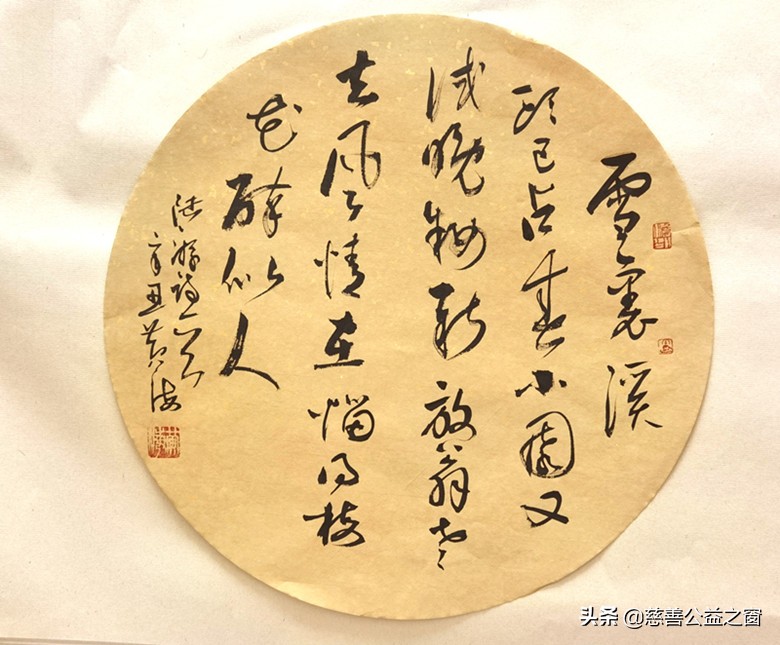 雪裏溪
頭已占春小園又
试晚妝新放翁老
去風情在惱得梅
花醉似人
陸游詩一首
辛丑黄海
头条 @慈善公益之窗